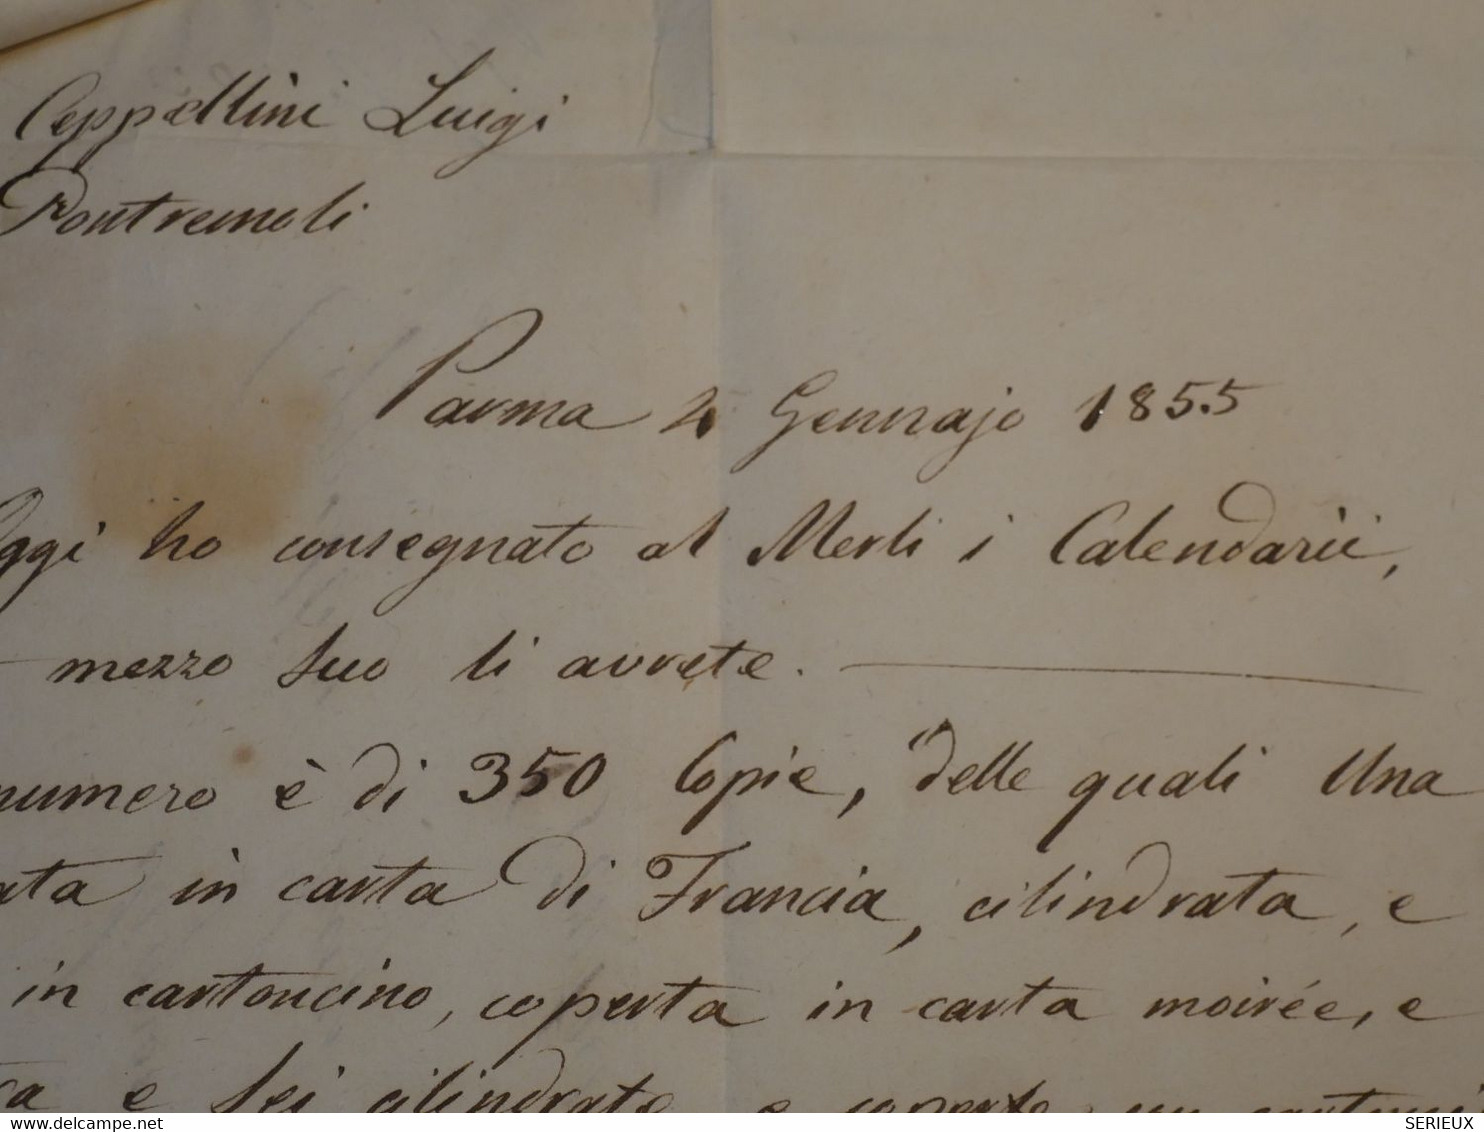 Ceppellini Luigi
Pontremoli
Parma 4 Gennajo 1855
Oggi ho consegnato al Merli i Calendarii,
mezzo suo li avrete.
numero è di 350 Copie, delle quali Una
ata in carta di Francia, cilindrata, e
in cartoncino, coperta in carta moirée, e
e sei cilindrate e coperte
SERIEUX
www.delcampe.net